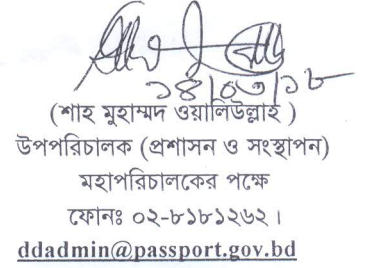 ১৪/০৩/১৮
(শাহ মুহাম্মদ ওয়ালিউল্লাহ )
উপপরিচালক (প্রশাসন ও সংস্থাপন)
মহাপরিচালকের পক্ষে
ফোনঃ ০২-৮১৮১২৬২ ।
ddadmin@passport.gov.bd